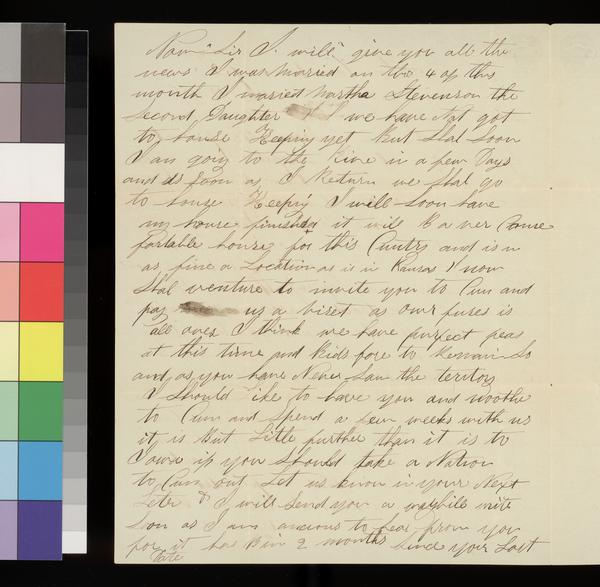 Now Sir I will give you all the
news I was Maried on the 4 of this
month I maried Martha Stevenson the
Second Daughter I we have Not got
to house Keeping yet But Shal Soon
I am going to the in a few Days
and as Soon as I Return we Shal go
to house Keeping I will Soon have
my house finished it will B a ver Comue
fortable house for this Cuntry and is in
as fine a Location as is in Kansas I now
Shal venture to invite you to Cum and
pay us a viset as our fuses is
all over I think we have purfect peas
at this time and Bids fore to Remain So
and as you have Never Saw the teritory
I Should like to have you and
to Cum and Spend a few weeks with us
it is But Litle further than it is to
Iowa if you Should take a Nation
to Cum out Let us know in your Next
Leter & I will Send you a waybile
Soon as I am ancious to hear from you
for it has Bin 2 months Since your Last
Date